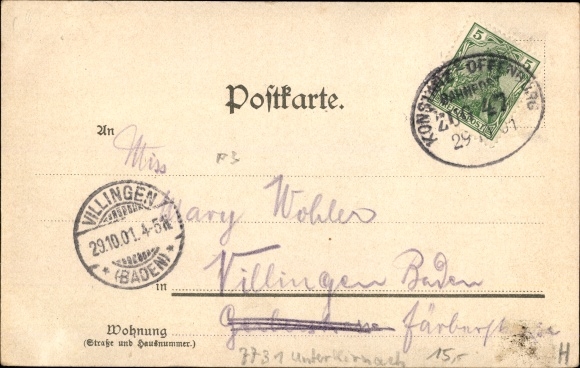 5 5
KONSTANZ - OFFENBURG
BAHNPOST
ZUG 47
29
Postkarte.
An
Miss
P3
Mary Wohler
VILLINGEN
29.10.01. 4-5N
* (BADEN) *
in Villingen Baden
Färberstrasse
Wohnung
(Straße und Hausnummer.)
7731 Unterkirnach 15,- H